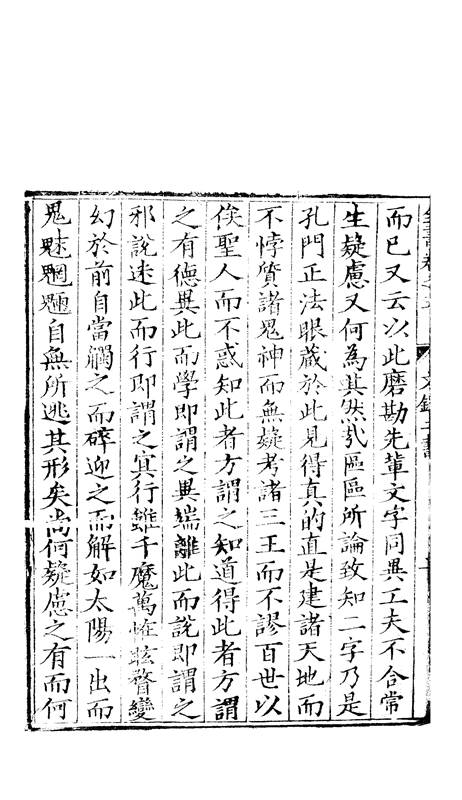 而已又云以此磨勘先輩文字同異工夫不合常
生疑慮又何為其然哉區區所論致知二字乃是
孔門正法眼蔵於此見得真的直是建諸天地而
不悖質諸鬼神而無疑考諸三王而不謬百世以
俟聖人而不惑知此者方謂之知道得此者方謂
之有德異此而學即謂之異端離此而說即謂之
邪說迷此而行即謂之冥行雖千魔萬怪眩瞀變
幻於前自當觸之而碎迎之而解如太陽一出而
鬼魅魍魎自無所逃其形矣尚何疑慮之有而何